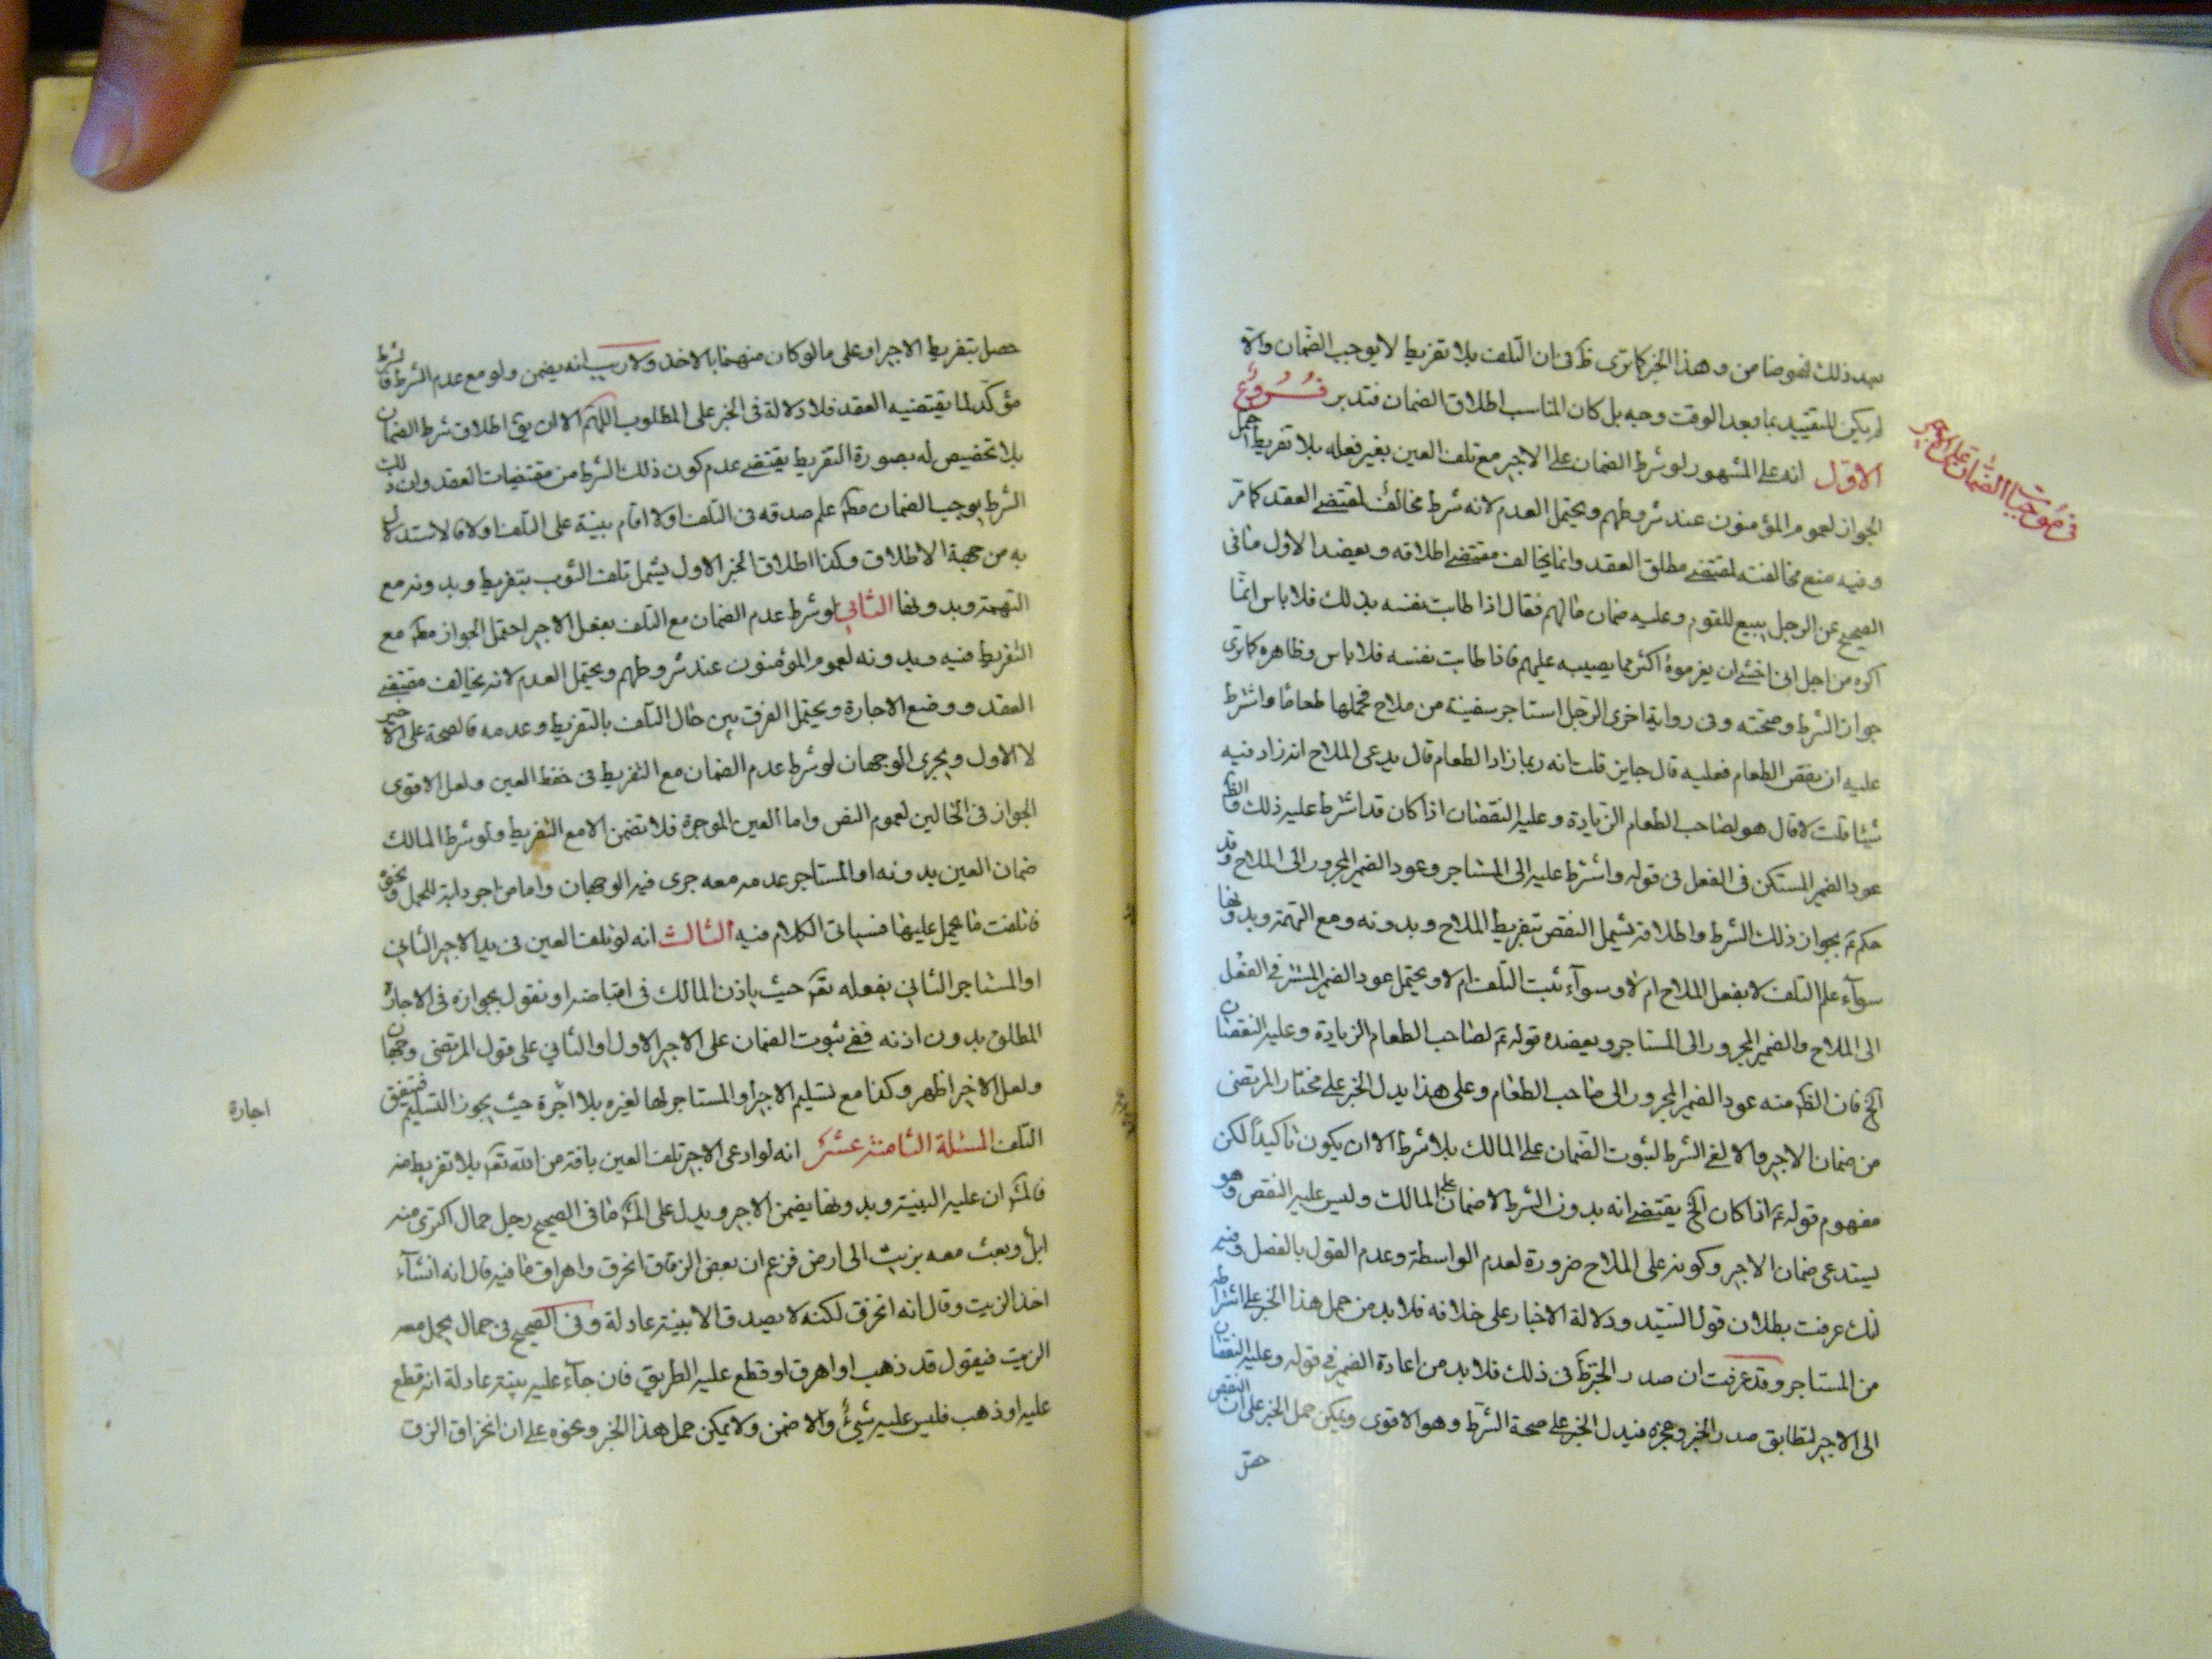 بعد ذلك فهو ضامن وهذا الخبر كما ترى ظ في ان التلف بلا تفريط لا يوجب الضمان والا
لم يكن للتقييد بما بعد الوقت وجه بل كان المناسب اطلاق الضمان فتدبر فروع
الاول انه على المشهور لو شرط الضمان على الاجير مع تلف العين بغير فعله بلا تفريط احتمل
الجواز لعموم المؤمنون عند شروطهم ويحتمل العدم لانه شرط مخالف لمقتضى العقد كما مر
وفيه منع مخالفته لمقتضى مطلق العقد وانما يخالف مقتضى اطلاقه ويعضد الاول ما في
الصحيح عن الرجل يبيع للقوم وعليه ضمان مالهم فقال اذا طابت نفسه بذلك فلا باس انما
اكره من اجل انى اخشى ان يغرموه اكثر مما يصيبه عليهم فاذا طابت نفسه فلا باس وظاهره كما ترى
جواز الشرط وصحته وفى رواية اخرى الرجل استاجر سفينة من ملاح فحملها طعاما واشترط
عليه ان نقص الطعام فعليه قال جايز قلت انه ربما زاد الطعام قال يدعى الملاح انه زاد فيه
شيئا قلت لا قال هو لصاحب الطعام الزيادة وعليه النقصان اذا كان قد اشترط عليه ذلك والظ
عود الضمير المستكن فى الفعل فى قوله واشترط عليه الى المستاجر وعود الضمير المجرور الى الملاح وقد
حكم ع بجواز ذلك الشرط واطلاقه يشمل النقص بتفريط الملاح وبدونه ومع التهمة وبدونها
سواء علم التلف لا بفعل الملاح ام لا وسواء ثبت التلف ام لا ويحتمل عود الضمير المستتر في الفعل
الى الملاح والضمير المجرور الى المستاجر ويعضده قوله ع لصاحب الطعام الزيادة وعليه النقصان
الخ فان الظ منه عود الضمير المجرور الى صاحب الطعام وعلى هذا يدل الخبر على مختار المرتضى
من ضمان الاجير والا لغى الشرط لثبوت الضمان على المالك بلا شرط الا ان يكون تاكيدا لكن
مفهوم قوله ع اذا كان الخ يقتضى انه بدون الشرط لا ضمان على المالك وليس عليه النقص وهو
يستدعى ضمان الاجير وكونه على الملاح ضرورة لعدم الواسطة وعدم القول بالفصل وفيه
انك عرفت بطلان قول السيد ودلالة الاخبار على خلافه فلا بد من حمل هذا الخبر على اشتراطه
من المستاجر وقد عرفت ان صدر الخبر ظ فى ذلك فلا بد من اعادة الضمير في قوله وعليه النقصان
الى الاجير لتطابق صدر الخبر وعجزه فيدل الخبر على صحة الشرط وهو الاقوى ويمكن حمل الخبر على ان النقص
حصل
فى موجبات الضمان على الاجير
حصل بتفريط الاجير او على ما لو كان متهما بالاخذ ولا ريب انه يضمن ولو مع عدم الشرط فالشرط
مؤكد لما يقتضيه العقد فلا دلالة فى الخبر على المطلوب اللهم الا ان يق اطلاق شرط الضمان
بلا تخصيص له بصورة التفريط يقتضى عدم كون ذلك الشرط من مقتضيات العقد وان ذلك
الشرط يوجب الضمان مط علم صدقه فى التلف اولا اقام بينة على التلف اولا فالاستدلال
به من جهة الاطلاق وكذا اطلاق الخبر الاول يشمل تلف الثوب بتفريط وبدونه مع
التهمة وبدونها الثاني لو شرط عدم الضمان مع التلف بفعل الاجير احتمل الجواز مط مع
التفريط فيه وبدونه لعموم المؤمنون عند شروطهم ويحتمل العدم لانه يخالف مقتضى
العقد ووضع الاجارة ويحتمل الفرق بين حال التلف بالتفريط وعدمه فالصحة على الاخير
لا الاول ويجرى الوجهان لو شرط عدم الضمان مع التفريط فى حفظ العين ولعل الاقوى
الجواز فى الحالين لعموم النص واما العين الموجرة فلا تضمن الا مع التفريط ولو شرط المالك
ضمان العين بدونه او المستاجر عدمه معه جرى فيه الوجهان واما من اجر دابة للحمل ونحوه
فاتلفت ما يحمل عليها فسياتى الكلام فيه الثالث انه لو تلف العين فى يد الاجير الثاني
او المستاجر الثاني بفعله تقر حيث باذن المالك فى اقباضه او نقول بجوازه فى الاجارة
المطلق بدون اذنه ففى ثبوت الضمان على الاجير الاول او الثاني على قول المرتضى وجهان
ولعل الاخير اظهر وكذا مع تسليم الاجير او المستاجر لها لغيره بلا اجرة حيث يجوز التسليم فيتفق
التلف المسئلة الثامنة عشر انه لو ادعى الاجير تلف العين بافة من الله تع بلا تفريط منه
فالمش ان عليه البينة وبدونها يضمن الاجير ويدل على المش ما فى الصحيح رجل جمال اكترى منه
ابل وبعث معه بزيت الى ارض فزعم ان بعض الزقاق انخرق واهراق ما فيه قال انه ان شاء
اخذ الزيت وقال انه انخرق لكنه لا يصدق الا ببينة عادلة وفى الصحيح فى جمال يحمل معه
الزيت فيقول قد ذهب او اهرق او قطع عليه الطريق فان جاء عليه ببينة عادلة انه قطع
عليه او ذهب فليس عليه شيء والا ضمن ولا يمكن حمل هذا الخبر ونحوه على ان انخراق الزق
اجارة